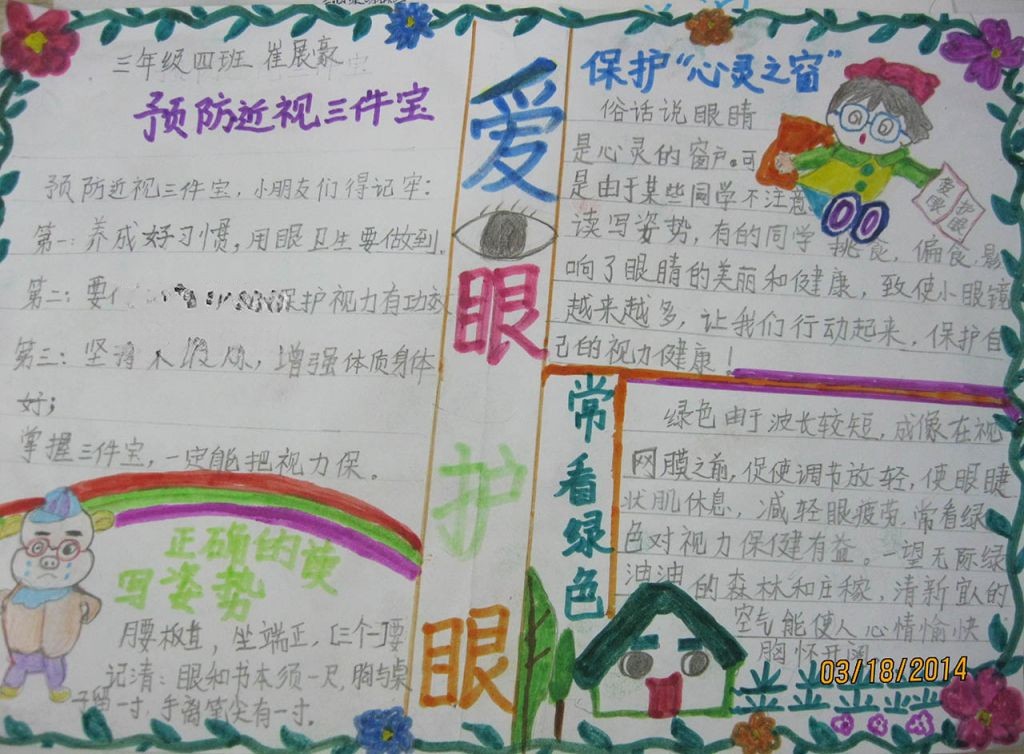 三年级四班 崔展豪
预防近视三件宝
预防近视三件宝,小朋友们得记牢:
第一:养成好习惯,用眼卫生要做到。
第二:要 保护视力有功效
第三:坚 ,增强体质身体
好;
掌握三件宝,一定能把视力保。
正确的读
写姿势
腰板直,坐端正,三个一要
记清:眼和书本须一尺,胸与桌
子留一寸,手离笔尖有一寸。
爱
眼
护
眼
保护“心灵之窗”
俗话说眼睛
是心灵的窗户。可
是由于某些同学不注意
读写姿势,有的同学挑食,偏食,影
响了眼睛的美丽和健康,致使小眼镜
越来越多,让我们行动起来,保护自
己的视力健康!
爱眼
护眼
常
看
绿
色
绿色由于波长较短,成像在视
网膜之前,促使调节放轻,使眼睫
状肌休息,减轻眼疲劳.常看绿
色对视力保健有益。一望无际绿
油油的森林和庄稼,清新宜人的
空气能使人心情愉快
胸怀开阔
03/18/2014